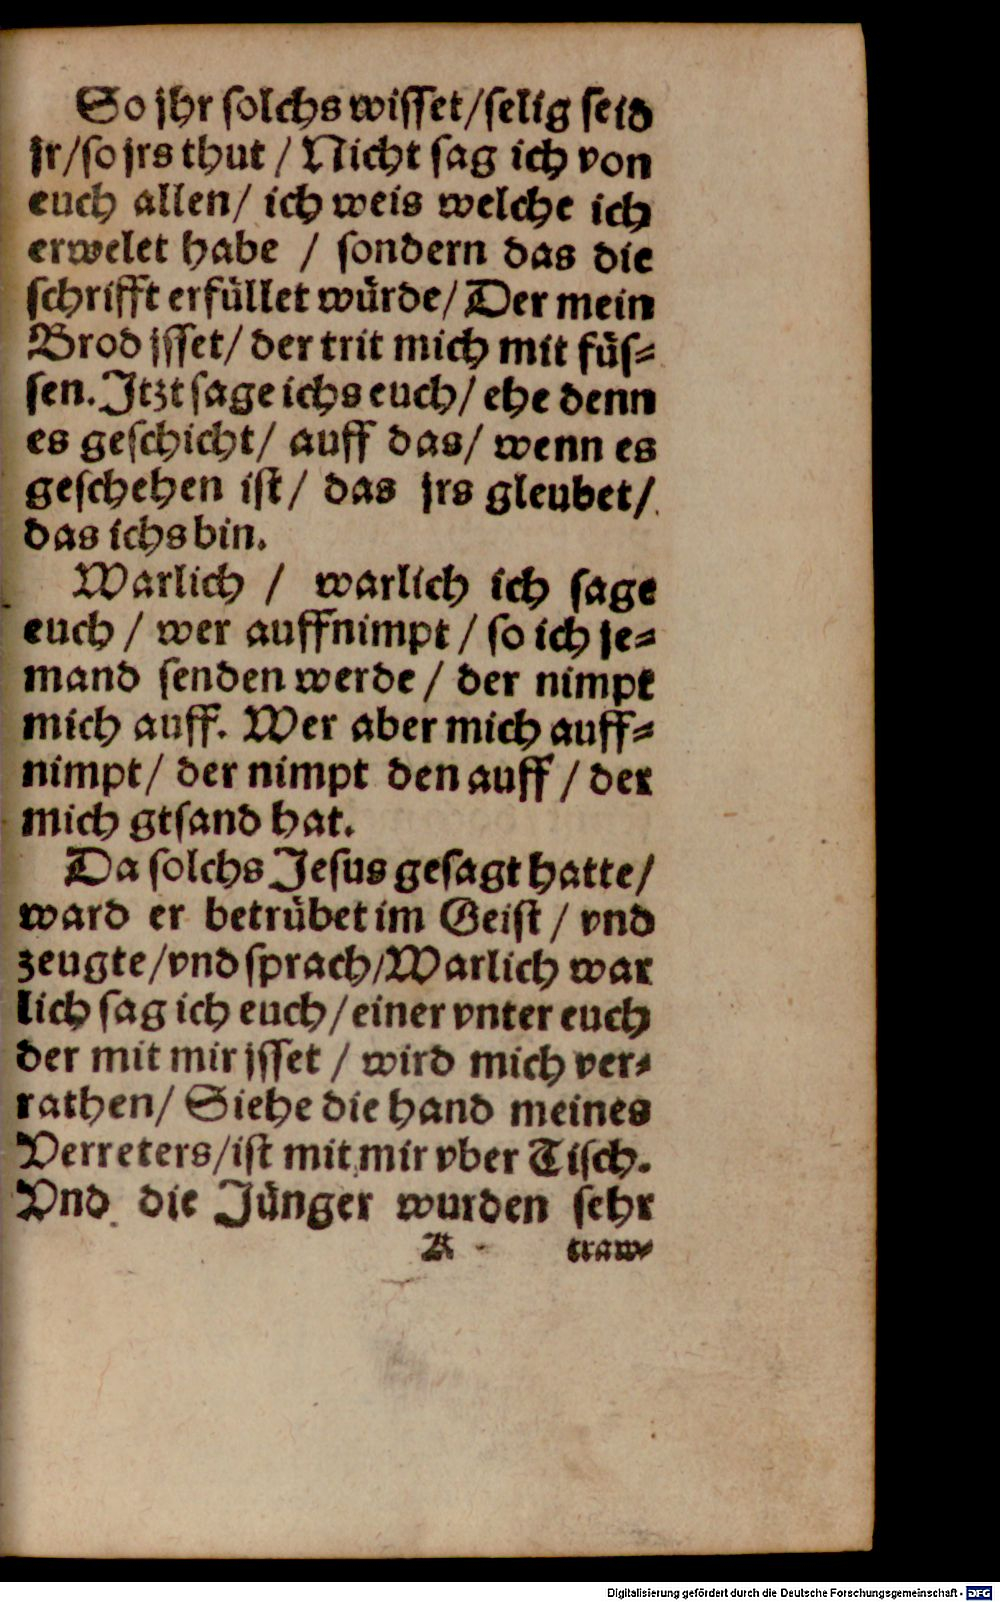 So jhr ſolchs wiſſet/ſelig ſeid
jr/ſo jrs thut / Nicht ſag ich von
euch allen/ ich weis welche ich
erwelet habe / ſondern das die
ſchrifft erfüllet würde/ Der mein
Brod jſſet/ der trit mich mit füſ⸗
ſen. Jtzt ſage ichs euch/ ehe denn
es geſchicht/ auff das/ wenn es
geſchehen iſt/ das jrs gleubet/
das ichs bin.
Warlich / warlich ich ſage
euch / wer auffnimpt / ſo ich je⸗
mand ſenden werde / der nimpt
mich auff. Wer aber mich auff⸗
nimpt/ der nimpt den auff / der
mich gtſand hat.
Da ſolchs Jeſus geſagt hatte/
ward er betrübet im Geiſt / vnd
zeugte/vnd ſprach/Warlich war
lich ſag ich euch/einer vnter euch
der mit mir jſſet / wird mich ver⸗
rathen/ Siehe die hand meines
Verreters/iſt mit mir vber Tiſch.
Vnd die Jünger wurden ſehr
A traw⸗
Digitalisierung gefördert durch die Deutsche Forschungsgemeinschaft - DFG